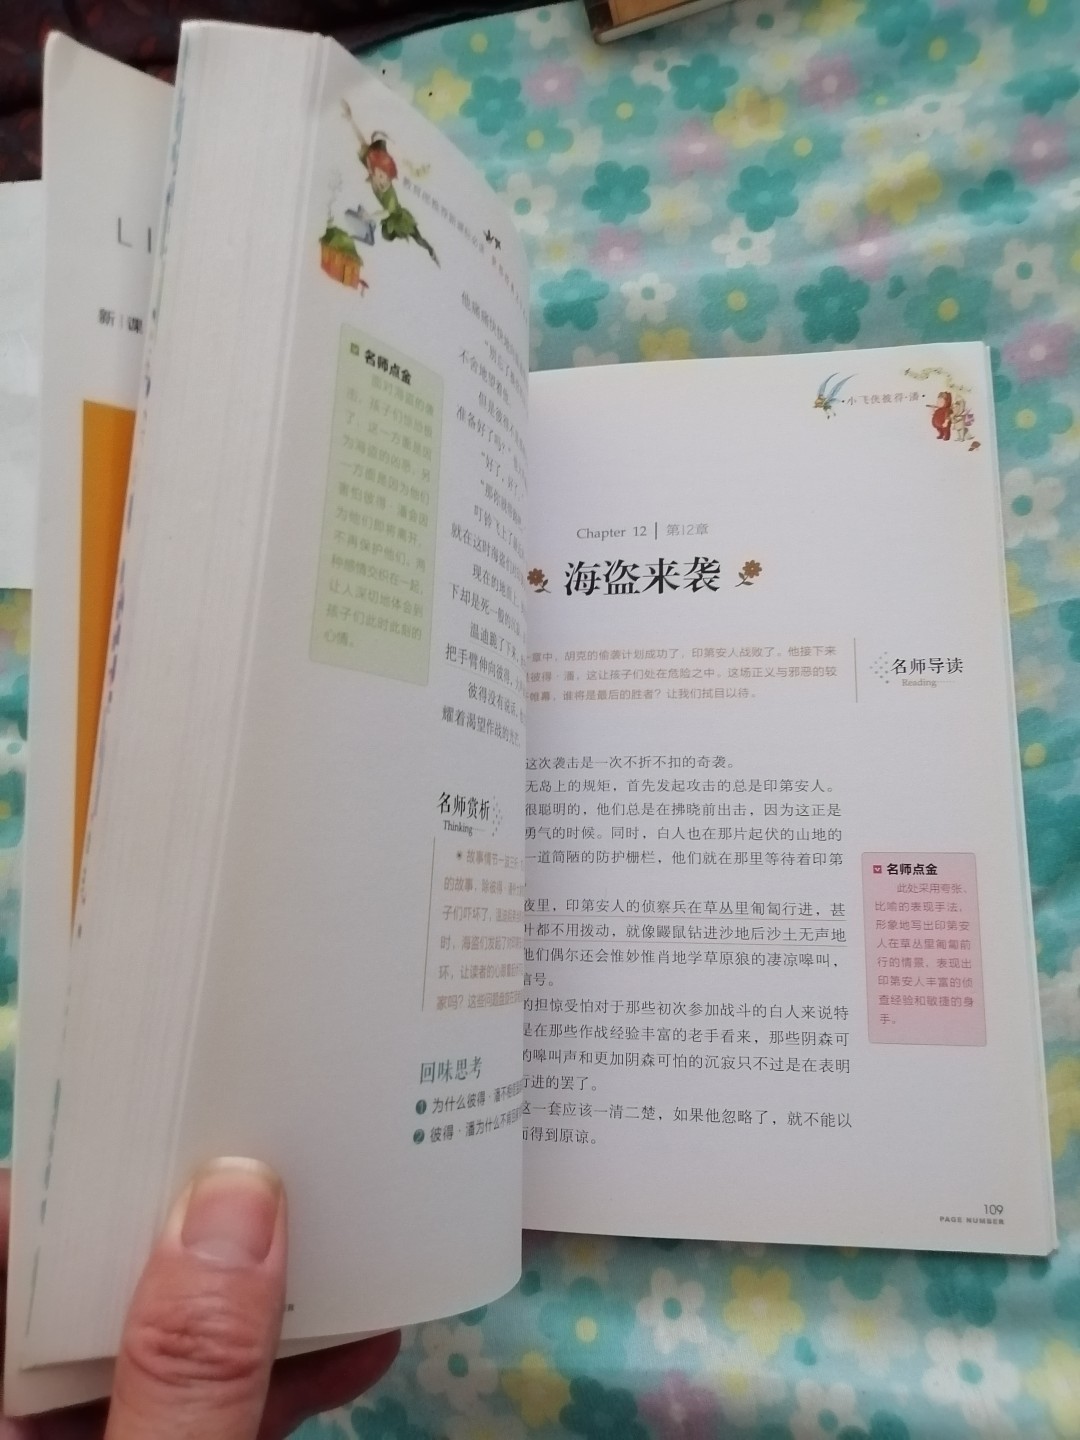 LI
新 课
教育部推荐新课标必读
名师点金
面对海盗的袭
击，孩子们惊恐极
了，这一方面是因
为海盗的凶恶，另
一方面是因为他们
害怕彼得·潘会因
为他们即将离开，
不再保护他们。两
种感情交织在一起，
让人深切地体会到
孩子们此时此刻的
心情。
他痛痛快快地
不舍地望着他。
但是彼得
准备好了吗？"
"好了，好了。"
"那你就带
叮铃飞上了
就在这时海盗们
现在的地面上，
下却是死一般的
温迪跪了下来，
把手臂伸向彼得，
彼得没有说话，
耀着渴望作战的光芒。
名师赏析
Thinking
故事情节一波三折
的故事，除彼得·潘
子们吓坏了，
时，海盗们发起了
环，让读者的心
家吗？这些问题
回味思考
1 为什么彼得·潘不
2 彼得·潘为什么不肯
·小飞侠彼得·潘·
Chapter 12 | 第12章
海盗来袭
一章中，胡克的偷袭计划成功了，印第安人战败了。他接下来
彼得·潘，这让孩子们处在危险之中。这场正义与邪恶的较
帷幕，谁将是最后的胜者？让我们拭目以待。
名师导读
Reading
这次袭击是一次不折不扣的奇袭。
无岛上的规矩，首先发起攻击的总是印第安人。
很聪明的，他们总是在拂晓前出击，因为这正是
勇气的时候。同时，白人也在那片起伏的山地的
一道简陋的防护栅栏，他们就在那里等待着印第
夜里，印第安人的侦察兵在草丛里匍匐行进，甚
叶都不用拨动，就像鼹鼠钻进沙地后沙土无声地
他们偶尔还会惟妙惟肖地学草原狼的凄凉嗥叫，
信号。
的担惊受怕对于那些初次参加战斗的白人来说特
是在那些作战经验丰富的老手看来，那些阴森可
的嗥叫声和更加阴森可怕的沉寂只不过是在表明
行进的罢了。
这一套应该一清二楚，如果他忽略了，就不能以
而得到原谅。
名师点金
此处采用夸张、
比喻的表现手法，
形象地写出印第安
人在草丛里匍匐前
行的情景，表现出
印第安人丰富的侦
查经验和敏捷的身
手。
109
PAGE NUMBER